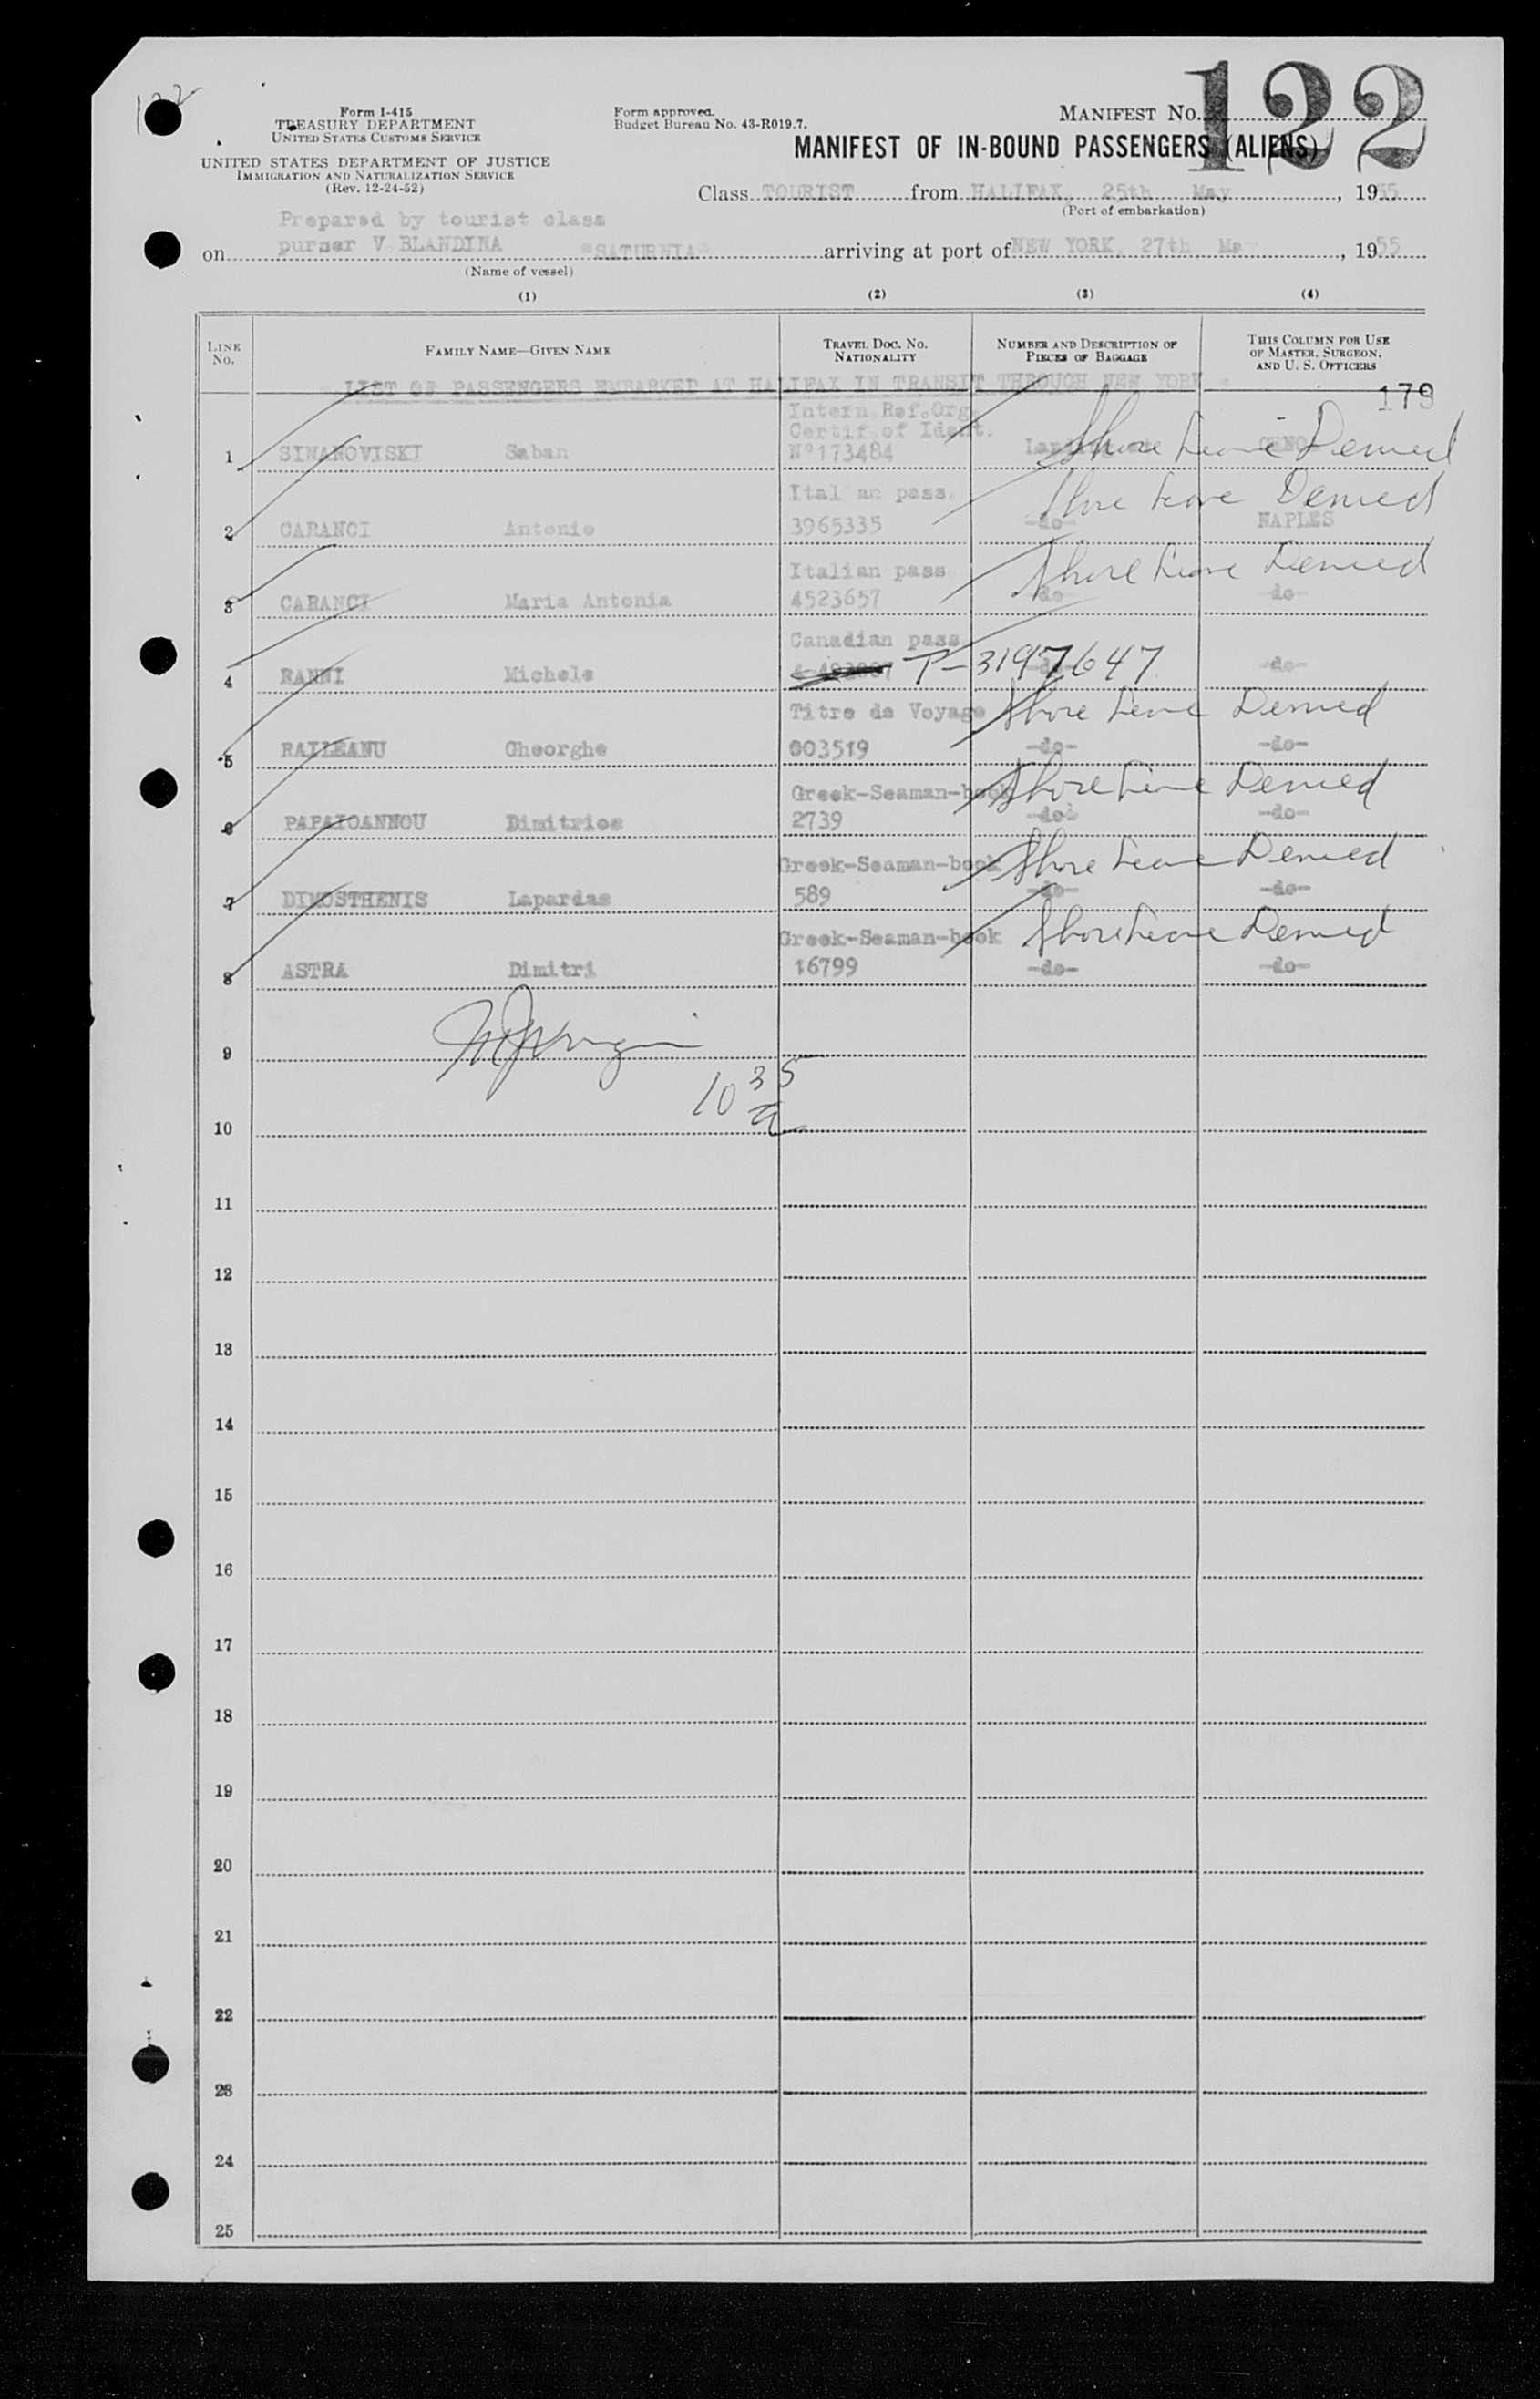 122
Form I-415
TREASURY DEPARTMENT
UNITED STATES CUSTOMS SERVICE
UNITED STATES DEPARTMENT OF JUSTICE
IMMIGRATION AND NATURALIZATION SERVICE
(Rev. 12-24-52)
Form approved.
Budget Bureau No. 43-R019.7.
MANIFEST No. 122
MANIFEST OF IN-BOUND PASSENGERS (ALIENS)
Class TOURIST from HALIFAX, 25th May, 1955
(Port of embarkation)
Prepared by tourist class
purser V. BLANDINA
on "SATURNIA" arriving at port of NEW YORK, 27th May, 1955
(Name of vessel)
(1) (2) (3) (4)
LINE No. FAMILY NAME—GIVEN NAME TRAVEL DOC. NO. NATIONALITY NUMBER AND DESCRIPTION OF PIECES OF BAGGAGE THIS COLUMN FOR USE OF MASTER, SURGEON, AND U. S. OFFICERS
LIST OF PASSENGERS EMBARKED AT HALIFAX IN TRANSIT THROUGH NEW YORK
179
Intern.Ref.Org.
Certif.of Ident.
1 SINANOVISKI Saban N°173484 Shore Leave Denied
Italian pass. Shore Leave Denied
2 CARANCI Antonio 3965335 -do- NAPLES
Italian pass. Shore Leave Denied
3 CARANCI Maria Antonia 4523657 -do- -do-
Canadian pass.
4 RANNI Michele P-3197647 -do- -do-
Titre de Voyage Shore Leave Denied
5 RAILEANU Gheorghe 003519 -do- -do-
Greek-Seaman-book Shore Leave Denied
6 PAPAIOANNOU Dimitrios 2739 -do- -do-
Greek-Seaman-book Shore Leave Denied
7 DIMOSTHENIS Lapardas 589 -do- -do-
Greek-Seaman-book Shore Leave Denied
8 ASTRA Dimitri 16799 -do- -do-
9
10 35 a
10
11
12
13
14
15
16
17
18
19
20
21
22
23
24
25